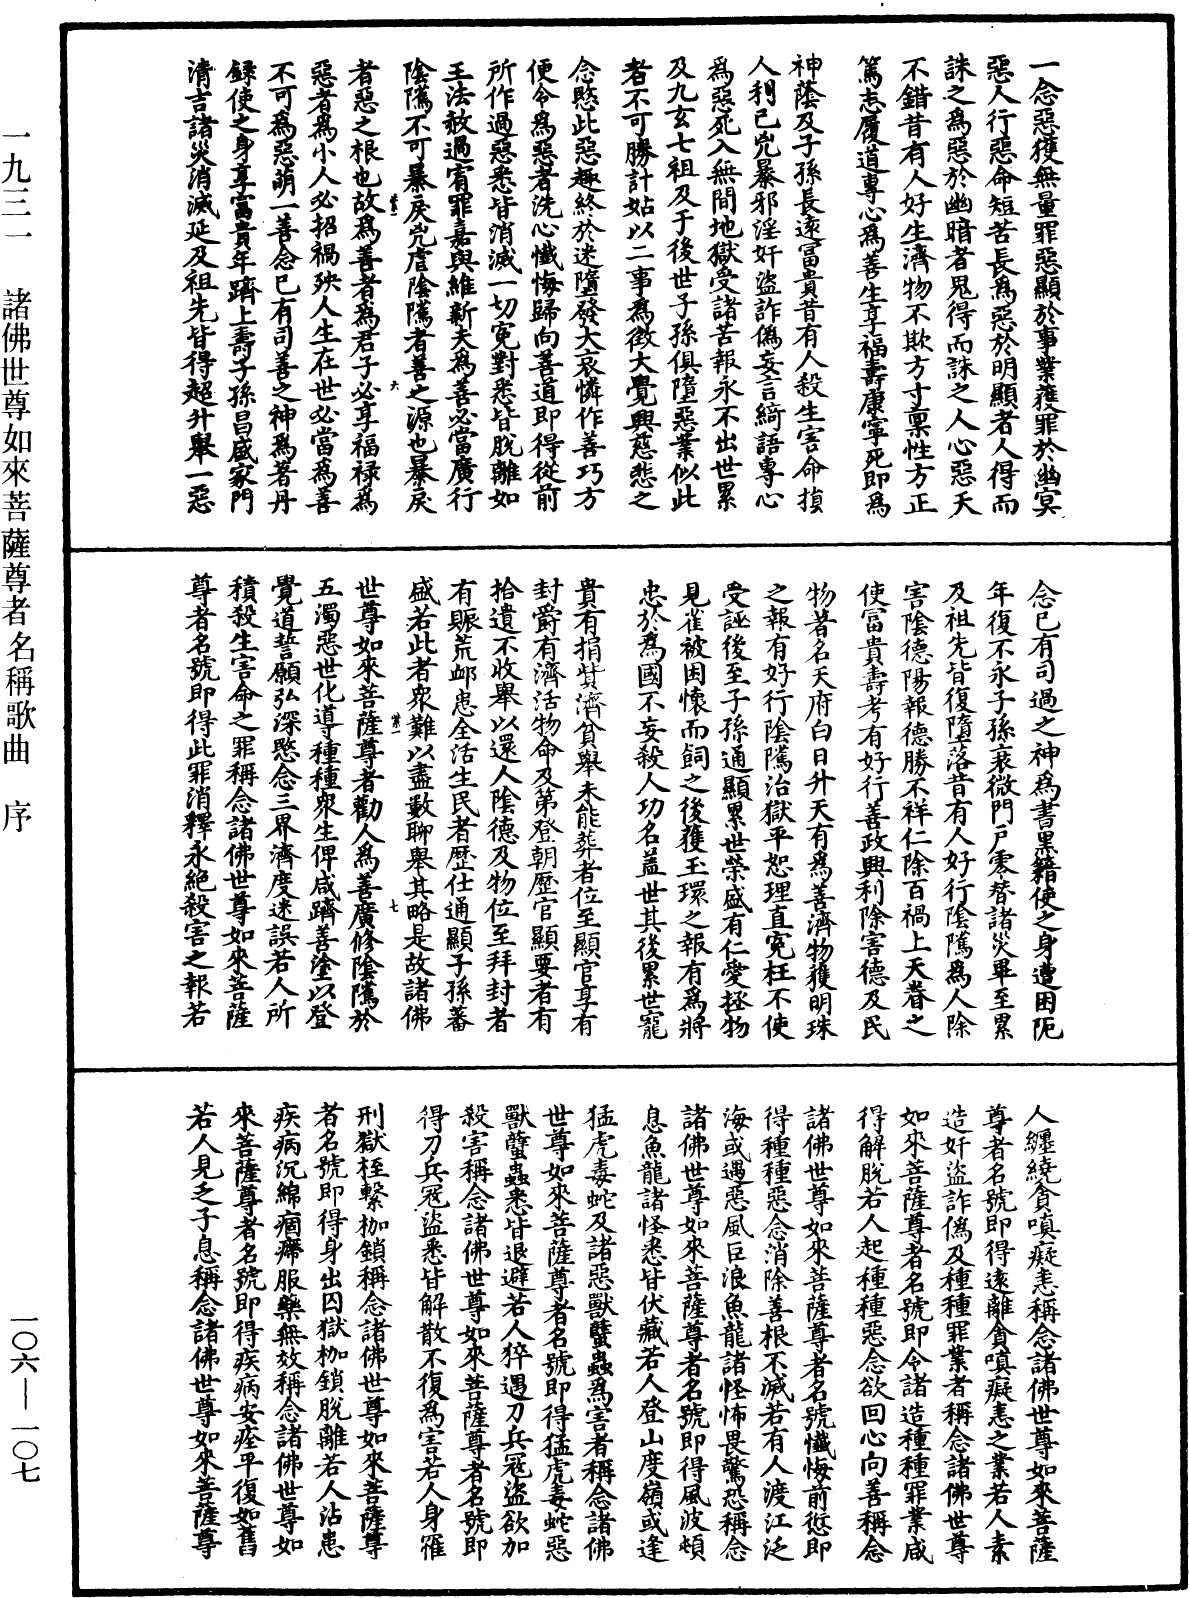 一念惡獲無量罪惡顯於事業獲罪於幽冥
惡人行惡命短苦長為惡於明顯者人得而
誅之為惡於幽暗者鬼得而誅之人心惡天
不錯昔有人好生濟物不欺方寸稟性方正
篤志履道專心為善生享福壽康寧死即為
神蔭及子孫長遠冨貴昔有人殺生害命損
人利己兇暴邪淫奸盜詐偽妄言綺語專心
為惡死入無間地獄受諸苦報永不出世累
及九玄七祖及于後世子孫俱墮惡業似此
者不可勝計姑以二事為徵大覺興慈悲之
念愍此惡趣終於迷墮發大哀憐作善巧方
便令為惡者洗心懺悔歸向善道即得從前
所作過惡悉皆消滅一切寃對悉皆脫離如
王法赦過宥罪嘉與維新夫為善必當廣行
陰隲不可暴戾兇虐陰隲者善之源也暴戾
者惡之根也故為善者為君子必享福祿為
惡者為小人必招禍殃人生在世必當為善
不可為惡萌一善念已有司善之神為著丹
錄使之身享富貴年躋上壽子孫昌盛家門
清吉諸災消滅延及祖先皆得超升舉一惡
念已有司過之神為書黑籍使之身遭困阨
年復不永子孫衰微門戶零替諸災畢至累
及祖先皆復墮落昔有人好行陰隲為人除
害陰德陽報德勝不祥仁除百禍上天眷之
使冨貴壽考有好行善政興利除害德及民
物著名天府白日升天有為善濟物獲明珠
之報有好行陰隲治獄平恕理直寃枉不使
受誣後至子孫通顯累世榮盛有仁愛拯物
見雀被困懷而飼之後獲玉環之報有為將
忠於為國不妄殺人功名蓋世其後累世寵
貴有捐貲濟貧舉未能葬者位至顯官享有
封爵有濟活物命及第登朝歷官顯要者有
拾遺不收舉以還人陰德及物位至拜封者
有賑荒卹患全活生民者歷仕通顯子孫蕃
盛若此者眾難以盡數聊舉其略是故諸佛
世尊如來菩薩尊者勸人為善廣修陰隲於
五濁惡世化導種種眾生俾咸躋善塗以登
覺道誓願弘深愍念三界濟度迷誤若人所
積殺生害命之罪稱念諸佛世尊如來菩薩
尊者名號即得此罪消釋永絕殺害之報若
人纏繞貪嗔癡恚稱念諸佛世尊如來菩薩
尊者名號即得遠離貪嗔癡恚之業若人素
造奸盜詐偽及種種罪業者稱念諸佛世尊
如來菩薩尊者名號即令諸造種種罪業咸
得解脫若人起種種惡念欲回心向善稱念
諸佛世尊如來菩薩尊者名號懺悔前愆即
得種種惡念消除善根不滅若有人渡江泛
海或遇惡風巨浪魚龍諸怪怖畏驚恐稱念
諸佛世尊如來菩薩尊者名號即得風波頓
息魚龍諸怪悉皆伏藏若人登山度嶺或逢
猛虎毒蛇及諸惡獸蠱蟲為害者稱念諸佛
世尊如來菩薩尊者名號即得猛虎毒蛇惡
獸蠱蟲悉皆退避若人猝遇刀兵冦盜欲加
殺害稱念諸佛世尊如來菩薩尊者名號即
得刀兵冦盜悉皆解散不復為害若人身罹
刑獄桎繫枷鎖稱念諸佛世尊如來菩薩尊
者名號即得身出囚獄枷鎖脫離若人沾患
疾病沉綿痼療服藥無效稱念諸佛世尊如
來菩薩尊者名號即得疾病安痊平復如舊
若人見乏子息稱念諸佛世尊如來菩薩尊
一九三一 諸佛世尊如來菩薩尊者名稱歌曲 序
一〇六—一〇七